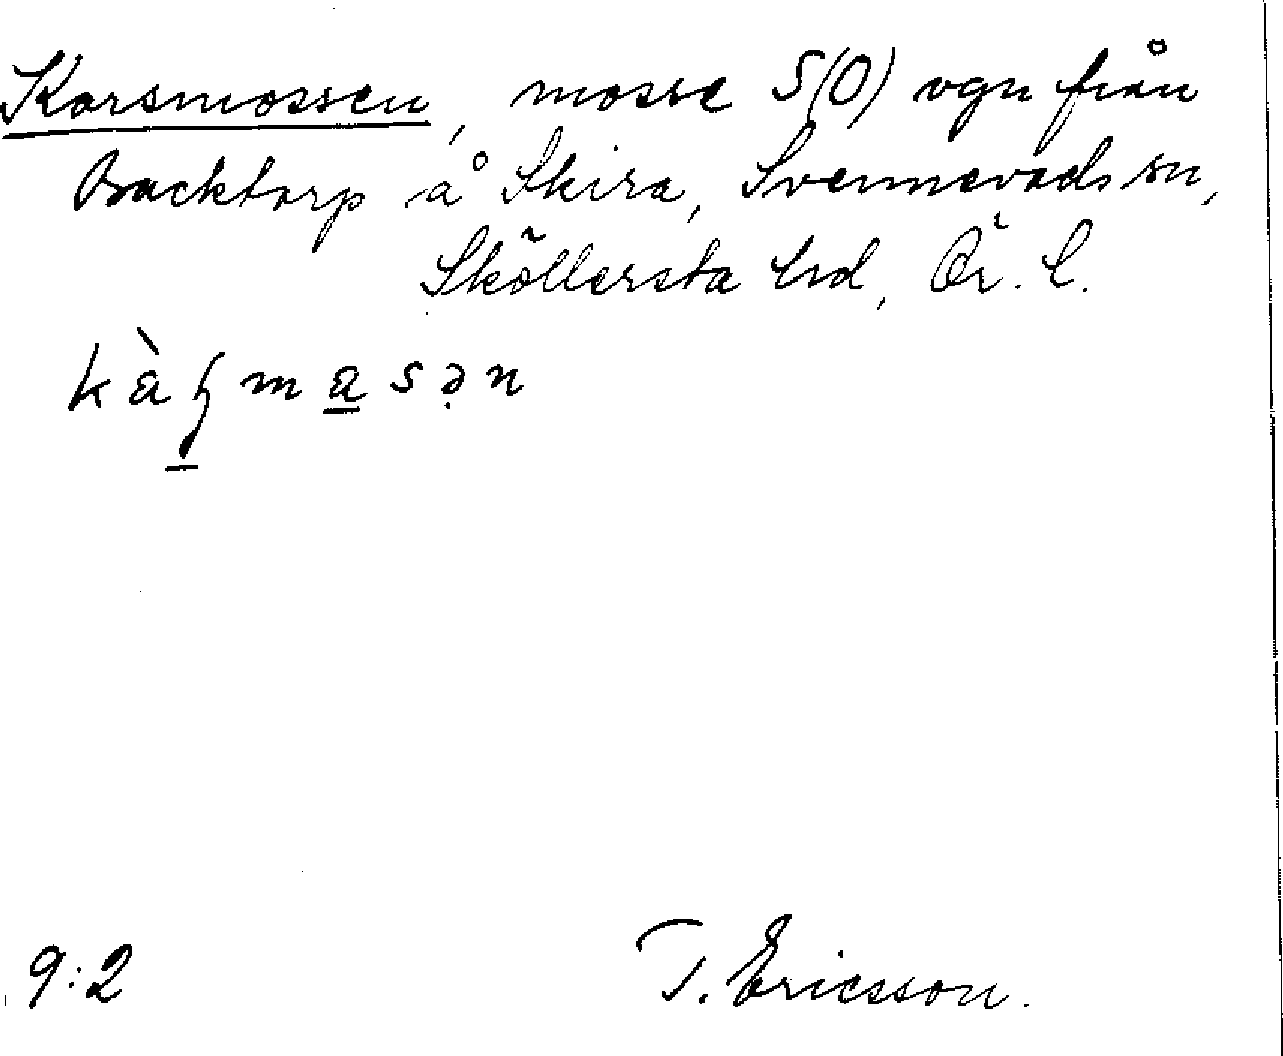 Korsmossen, mosse S(O) vgn från
Backtorp å Skira, Svennevads sn,
Sköllersta hd, Ör. l.
9:2
T. Ericsson.